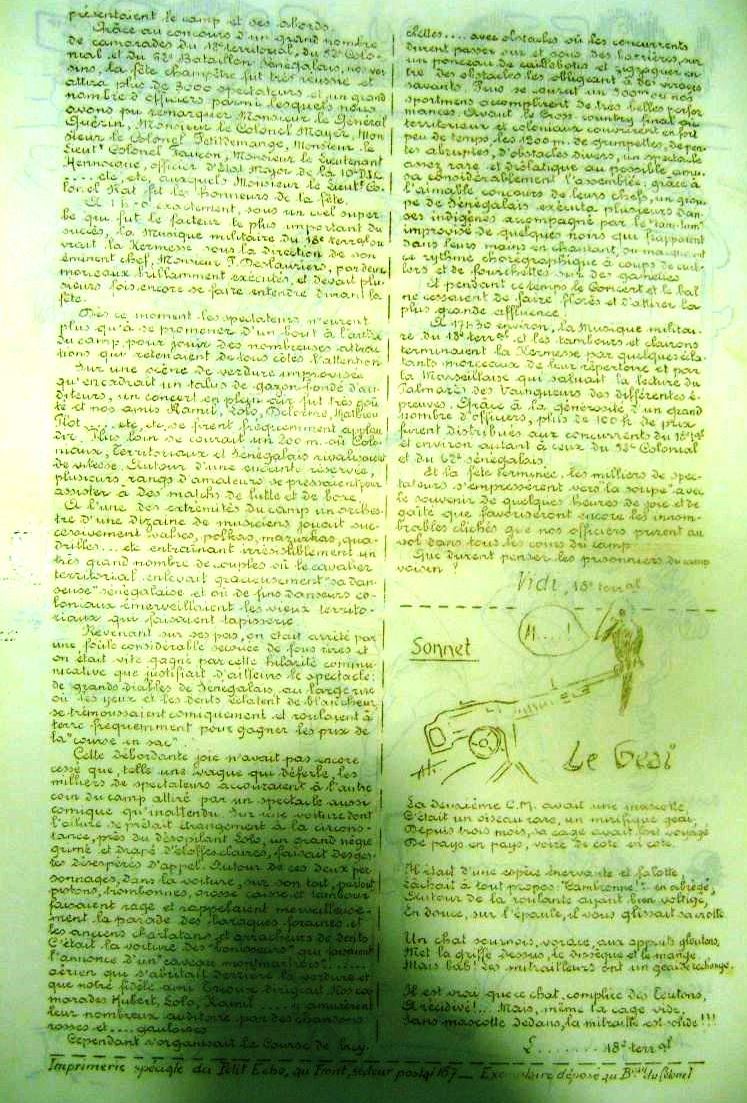 présentaient le camp et ses abords.
Grâce au concours d'un grand nombre
de camarades du 18e territorial, du 52e Colo-
nial et du 62e Bataillon Sénégalais, nos voi-
sins, la fête champêtre fut très réussie et
attira plus de 3000 spectateurs et un grand
nombre d'officiers parmi lesquels nous
avons pu remarquer Monsieur le Général
Guérin, Monsieur le Colonel Mayer, Mon
sieur le Colonel Petitdemange, Monsieur le
Lieutt Colonel Fauçon, Monsieur le Lieutenant
Hennocque, officier d'Etat Major de la 10e D.I.C
.... etc, etc, auxquels Monsieur le Lieutt Co-
lonel Rat fit les honneurs de la fête.
exactement, sous un ciel super
be qui fut le facteur le plus important du
succès, la Musique militaire du 18e terral ou
vrait la Kermesse sous la direction de son
éminent chef, Monsieur P. Deslauriers, par deux
morceaux brillamment exécutés, et devait plu-
sieurs fois encore se faire entendre durant la
fête.
Dès ce moment les spectateurs n'eurent
plus qu'à se promener d'un bout à l'autre
du camp, pour jouir des nombreuses attrac
tions qui retenaient de tous côtés l'attention
Sur une scène de verdure improvisée
qu'encadrait un talus de gazon bondé d'au-
diteurs, un concert en plein air fut très goû
té et nos amis Ramil, Lolo, Delorme, Mathieu
etc, etc, se firent fréquemment applau
dir. Plus loin se courait un 200 m. où Colo-
niaux, territoriaux et Sénégalais rivalisaient
de vitesse. Autour d'une enceinte réservée,
plusieurs rangs d'amateurs se pressaient pour
assister à des matchs de lutte et de boxe.
A l'une des extrémités du camp un orches-
tre d'une dizaine de musiciens jouait suc-
cessivement valses, polkas, mazurkas, qua-
drilles.... etc entraînant irrésistiblement un
très grand nombre de couples où le cavalier
territorial enlevait gracieusement "sa dan-
seuse" sénégalaise et où de fins danseurs co-
loniaux émerveillaient les vieux territo-
riaux qui faisaient tapisserie.
Revenant sur ses pas, on était arrêté par
une foule considérable secouée de fous rires et
on était vite gagné par cette hilarité commu-
nicative que justifiait d'ailleurs le spectacle:
de grands diables de Sénégalais, au large rire
où les yeux et les dents éclatent de blancheur
se trémoussaient comiquement et roulaient à
terre fréquemment pour gagner les prix de
la "course en sac".
Cette débordante joie n'avait pas encore
cessé que, telle une vague qui déferle, les
milliers de spectateurs accouraient à l'autre
coin du camp attiré par un spectacle aussi
comique qu'inattendu. Sur une voiture dont
l'allure se prêtait étrangement à la circons-
tance, près du désopilant Lolo, un grand nègre
grimé et drapé d'étoffes claires, faisait des ges-
tes désespérés d'appel. Autour de ces deux per-
sonnages, dans la voiture, sur son toit, partout
pistons, trombonnes, grosse caisse et tambour
faisaient rage et rappelaient merveilleuse-
ment la parade des baraques foraines et
les anciens charlatans et arracheurs de dents
C'était la voiture des "bonisseurs" qui faisaient
l'annonce d'un "caveau montmartrois"......
aérien qui s'abritait derrière la verdure et
que notre fidèle ami dirigeait. Nos ca
marades Hubert, Lolo, Ramil..... y amusèrent
leur nombreux auditoire par des chansons
rosses et .... gauloises
Cependant s'organisait la Course de bicy-
chettes.... avec obstacles où les concurrents
durent passer sur et sous des barrières, sur
un ponceau de caillebotis et zigzaguer en-
tre des obstacles les obligeant à des virages
savants. Puis se courut un 500m où nos
sportmens accomplirent de très belles perfor
mances. Avant le Cross-country final où
territoriaux et coloniaux couvrirent en fort
peu de temps les 1200 m. de grimpettes, de pen-
tes abruptes, d'obstacles divers, un spectacle
assez rare et drôlatique au possible amu-
sa considérablement l'assemblée: grâce à
l'aimable concours de leurs chefs, un grou
pe de Sénégalais exécuta plusieurs dan-
ses indigènes accompagné par le "tam-tam"
improvisé de quelques noirs qui frappaient
dans leurs mains en chantant, ou marquaient
ce rythme chorégraphique à coups de cuil-
lers et de fourchettes sur des gamelles.
Et pendant ce temps le Concert et le bal
ne cessaient de faire florès et d'attirer la
plus grande affluence.
A 17h30 environ, la Musique militai-
re du 18e terral et les tambours et clairons
terminaient la Kermesse par quelques écla-
tants morceaux de leur répertoire et par
la Marseillaise qui saluait la lecture du
Palmarès des Vainqueurs des différentes é-
preuves. Grâce à la générosité d'un grand
nombre d'officiers, plus de 100 fr. de prix
furent distribués aux concurrents du 18e tal
et environ autant à ceux du 52e Colonial
et du 62e sénégalais.
Et la fête terminée, les milliers de spec-
tateurs s'empressèrent vers "la soupe" avec
le souvenir de quelques heures de joie et de
gaîté que favoriseront encore les innom-
brables clichés que nos officiers prirent au
vol dans tous les coins du camp.
Que durent penser les prisonniers du camp
voisin ?
Vidi, 18e terral
M....!
Sonnet
Le Geai
La deuxième C.M. avait une mascotte,
C'était un oiseau rare, un mirifique geai,
Depuis trois mois, sa cage avait fort voyagé
De pays en pays, voire de côte en côte.
Il était d'une espèce énervante et falotte,
Lâchait à tout propos: "Cambronne!": en abrégé,
Autour de la roulante ayant bien voltigé,
En douce, sur l'épaule, il vous glissait sa crotte.
Un chat sournois, vorace, aux appétits gloutons,
Met la griffe dessus, le dissèque et le mange.
Mais bah! Les mitrailleurs ont un geai de rechange.
Il est vrai que ce chat, complice des teutons,
A récidivé!.. Mais, même la cage vide,
Sans mascotte dedans, la mitraille est solide!!!
L........ 18e terral
Imprimerie spéciale du Petit Echo, au Front, secteur postal 167 — Exemplaire déposé au Beau du Colonel